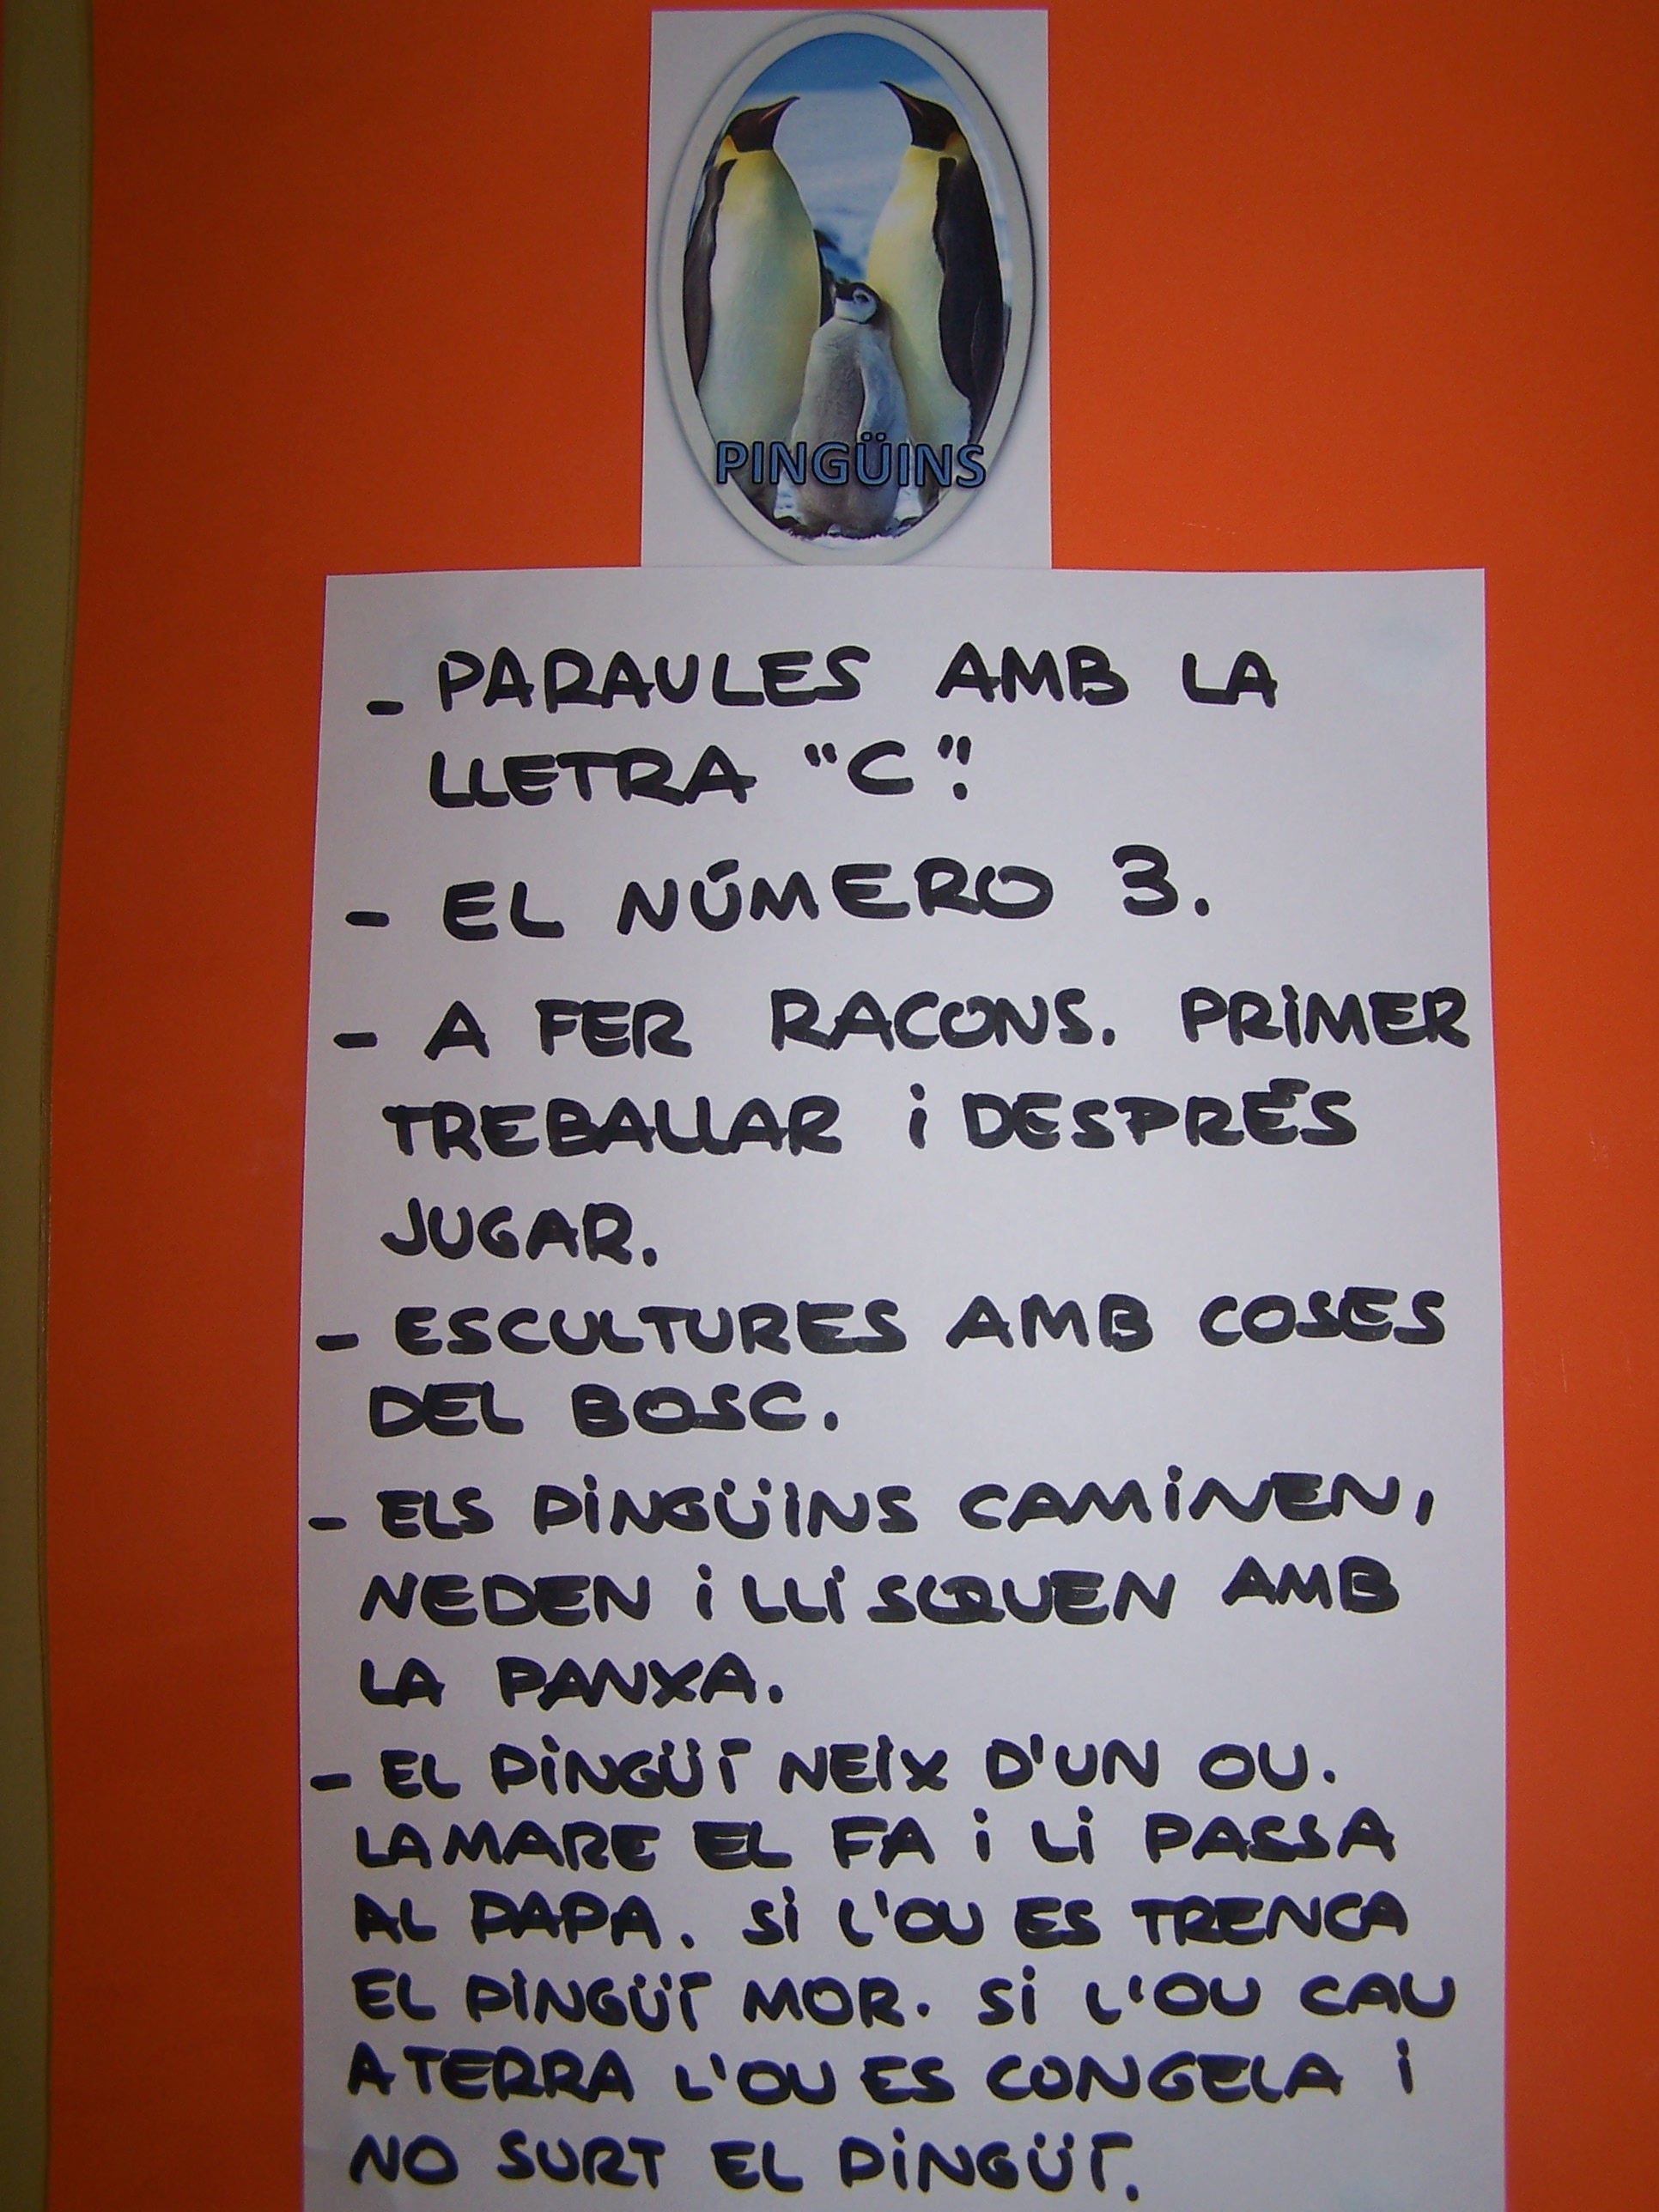 PINGÜINS
- PARAULES AMB LA
LLETRA "C".
- EL NÚMERO 3.
- A FER RACONS. PRIMER
TREBALLAR I DESPRÉS
JUGAR.
- ESCULTURES AMB COSES
DEL BOSC.
- ELS PINGÜINS CAMINEN,
NEDEN I LLISQUEN AMB
LA PANXA.
- EL PINGÜÍ NEIX D'UN OU.
LA MARE EL FA I LI PASSA
AL PAPA. SI L'OU ES TRENCA
EL PINGÜÍ MOR. SI L'OU CAU
A TERRA L'OU ES CONGELA I
NO SURT EL PINGÜÍ.